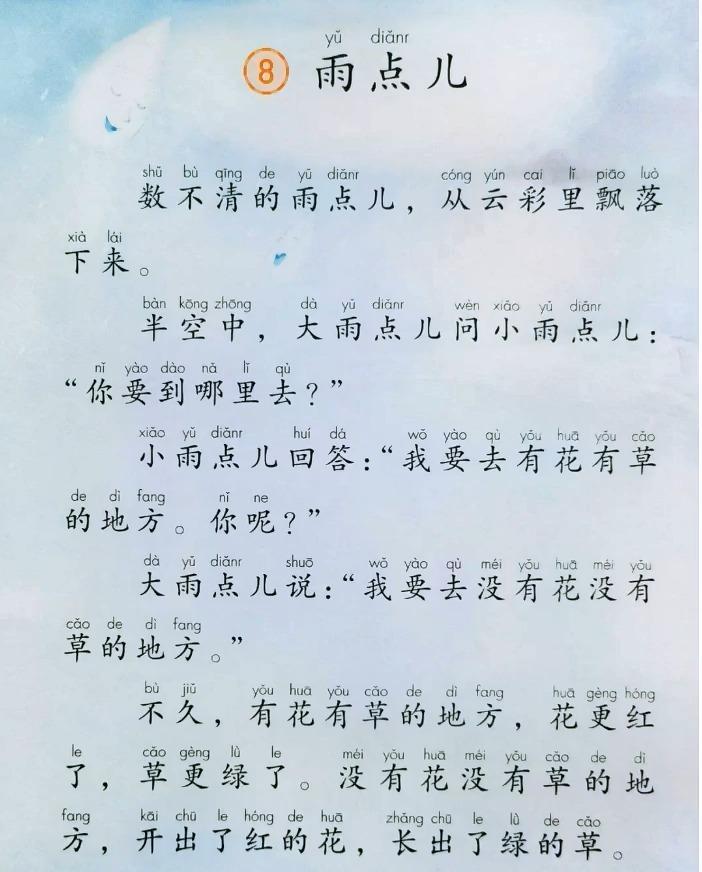 yǔ diǎnr
8 雨点儿
shǔ bù qīng de yǔ diǎnr cóng yún cai lǐ piāo luò
数不清的雨点儿，从云彩里飘落
xià lái
下来。
bàn kōng zhōng dà yǔ diǎnr wèn xiǎo yǔ diǎnr
半空中，大雨点儿问小雨点儿：
nǐ yào dào nǎ lǐ qù
“你要到哪里去？”
xiǎo yǔ diǎnr huí dá wǒ yào qù yǒu huā yǒu cǎo
小雨点儿回答：“我要去有花有草
de dì fang nǐ ne
的地方。你呢？”
dà yǔ diǎnr shuō wǒ yào qù méi yǒu huā méi yǒu
大雨点儿说：“我要去没有花没有
cǎo de dì fang
草的地方。”
bù jiǔ yǒu huā yǒu cǎo de dì fang huā gèng hóng
不久，有花有草的地方，花更红
le cǎo gèng lǜ le méi yǒu huā méi yǒu cǎo de dì
了，草更绿了。没有花没有草的地
fang kāi chū le hóng de huā zhǎng chū le lǜ de cǎo
方，开出了红的花，长出了绿的草。